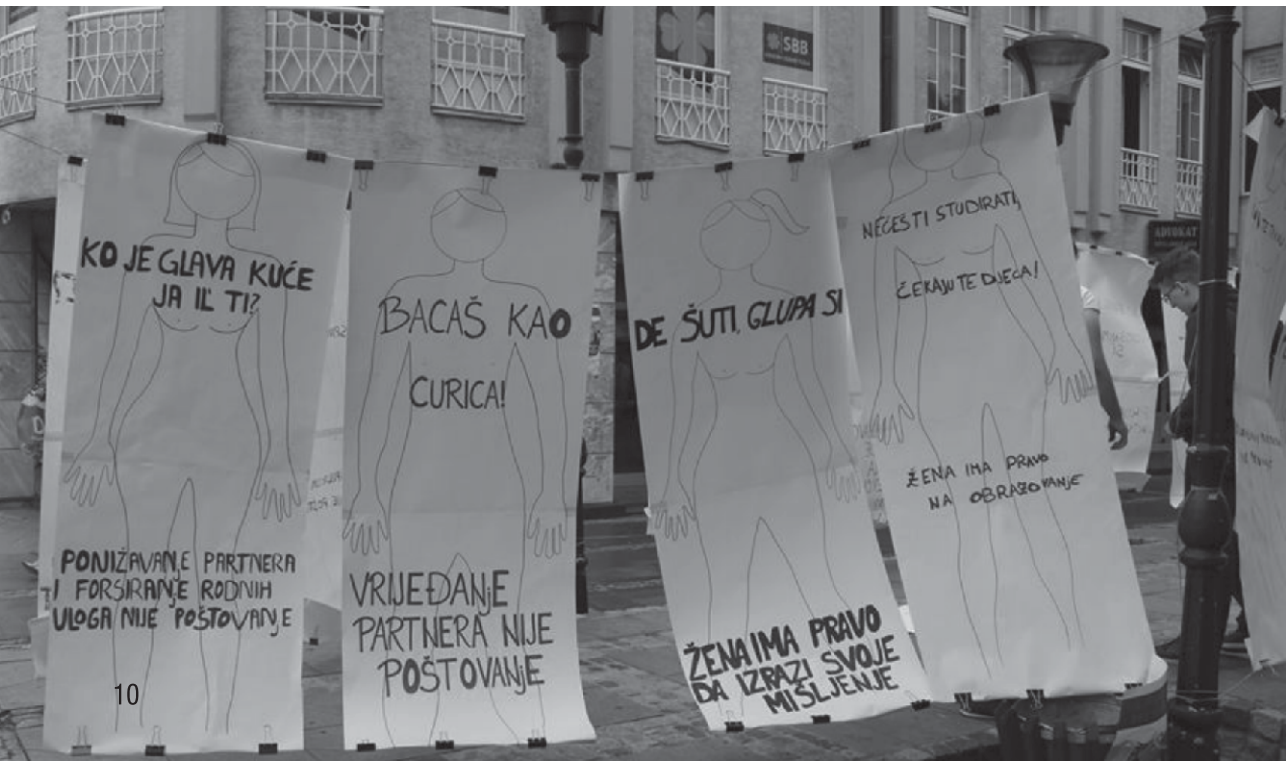 SBB
ADVOKAT
KO JE GLAVA KUĆE
JA IL' TI?
PONIŽAVANJE PARTNERA
I FORSIRANJE RODNIH
ULOGA NIJE POŠTOVANJE
BACAŠ KAO
CURICA!
VRIJEĐANJE
PARTNERA NIJE
POŠTOVANJE
DE ŠUTI, GLUPA SI
ŽENA IMA PRAVO
DA IZRAZI SVOJE
MIŠLJENJE
NEĆEŠ TI STUDIRATI,
ČEKAJU TE DJECA!
ŽENA IMA PRAVO
NA OBRAZOVANJE
10